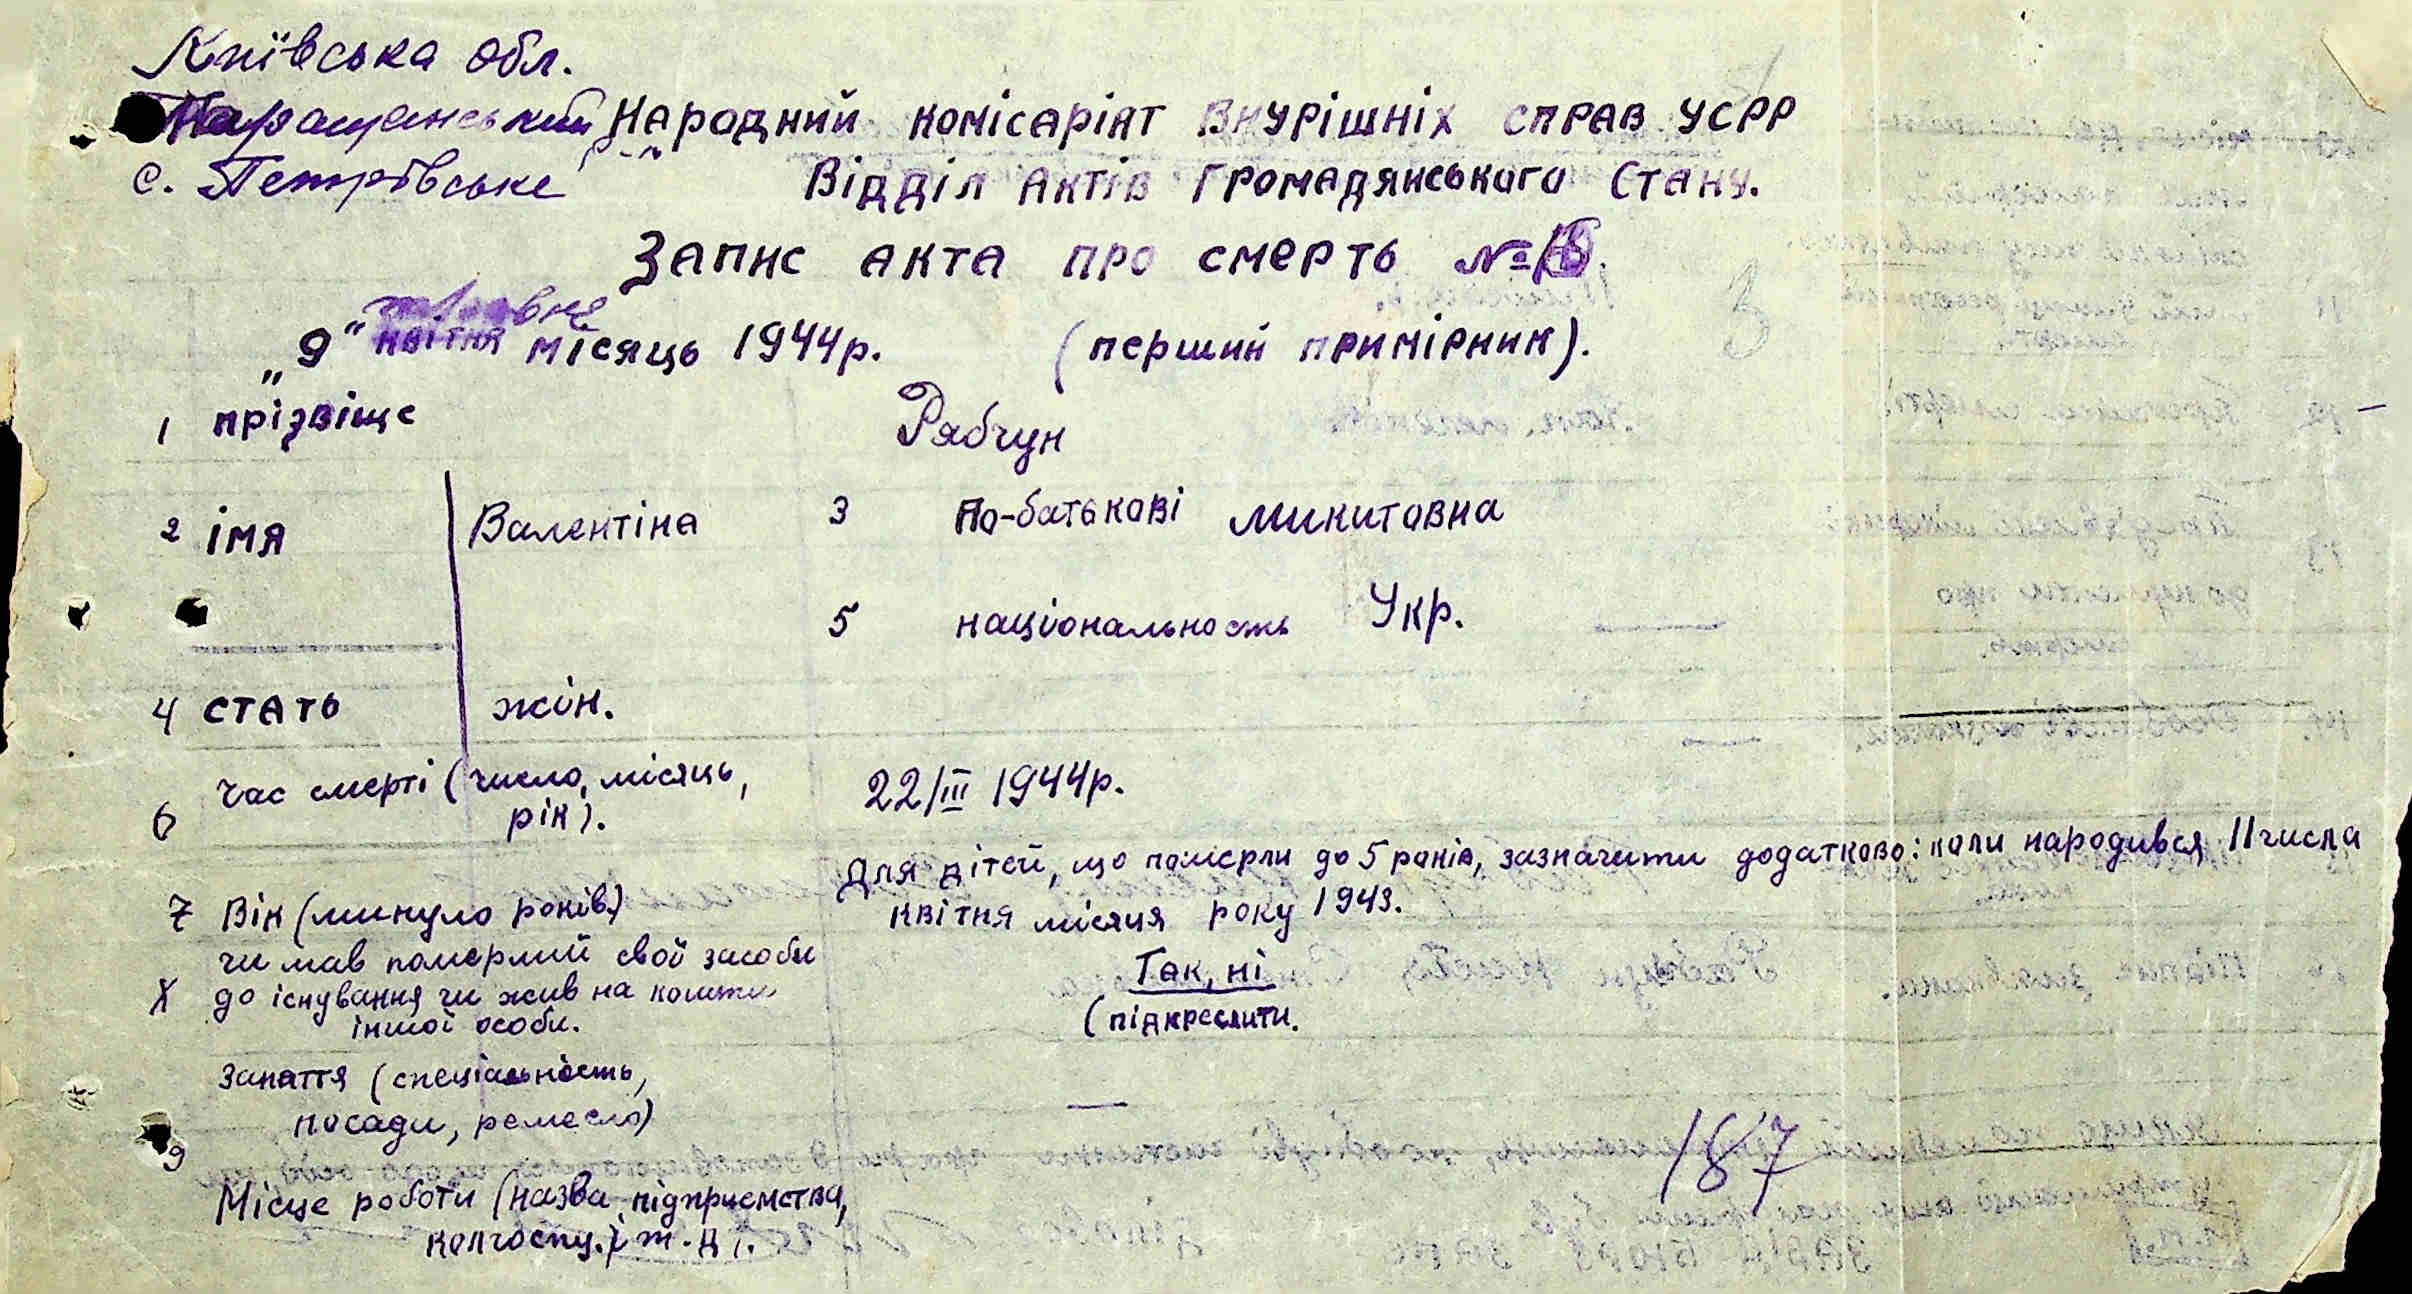 Київська обл.
Таращанський р-н
с. Петрівське
Народний комісаріят Внурішніх справ УСРР
Відділ Актів Громадянського Стану.
Запис акта про смерть №
„9“ травня місяць 1944р. (перший примірник).
1 прізвіще Рябчун
2 імя Валентіна 3 по-батькові Микитовна
5 національность Укр.
4 стать жін.
6 Час смерті (число, місяць, рік). 22/III 1944р.
7 Вік (минуло років.) Для дітей, що померли до 5 років, зазначити додатково: коли народився 11 числа
квітня місяця року 1943.
чи мав померлий свої засоби
до існування чи жив на кошти
іншої особи.
Так, ні
(підкреслити.
Заняття (спеціальность,
посади, ремесло) —
9
Місце роботи (назва підприємства,
колгоспу. і т. д).
187
3